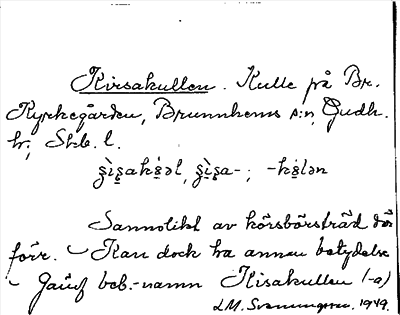 Kirsakullen. Kulle på Br.
Kyrkegården, Brunnhems s:n, Gudh.
hr; Skb. l.
Sannolikt av körsbärsträd där
förr. – Kan dock ha annan betydelse
– Jämf beb.-namn Kisakullen (-a)
1949.